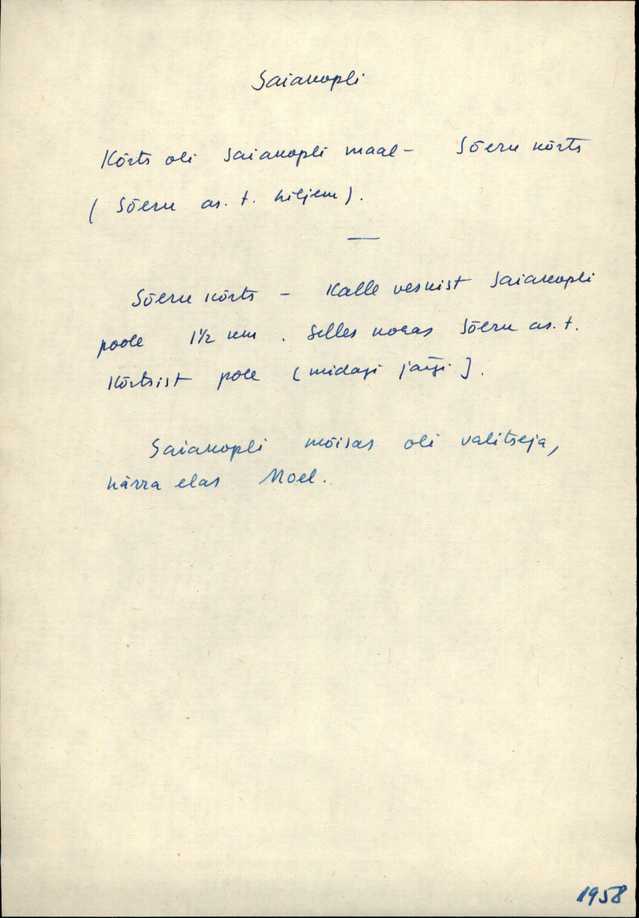 Saiakopli
Kõrts oli Saiakopli maal – Sõeru kõrts
( Sõeru as. t. hiljem ).
—
Sõeru kõrts – Kalle veskist Saiakopli
poole 1½ km . Selles kohas Sõeru as. t.
Kõrtsist pole [ midagi järgi ] .
Saiakopli mõisas oli valitseja,
härra elas Moel.
1958